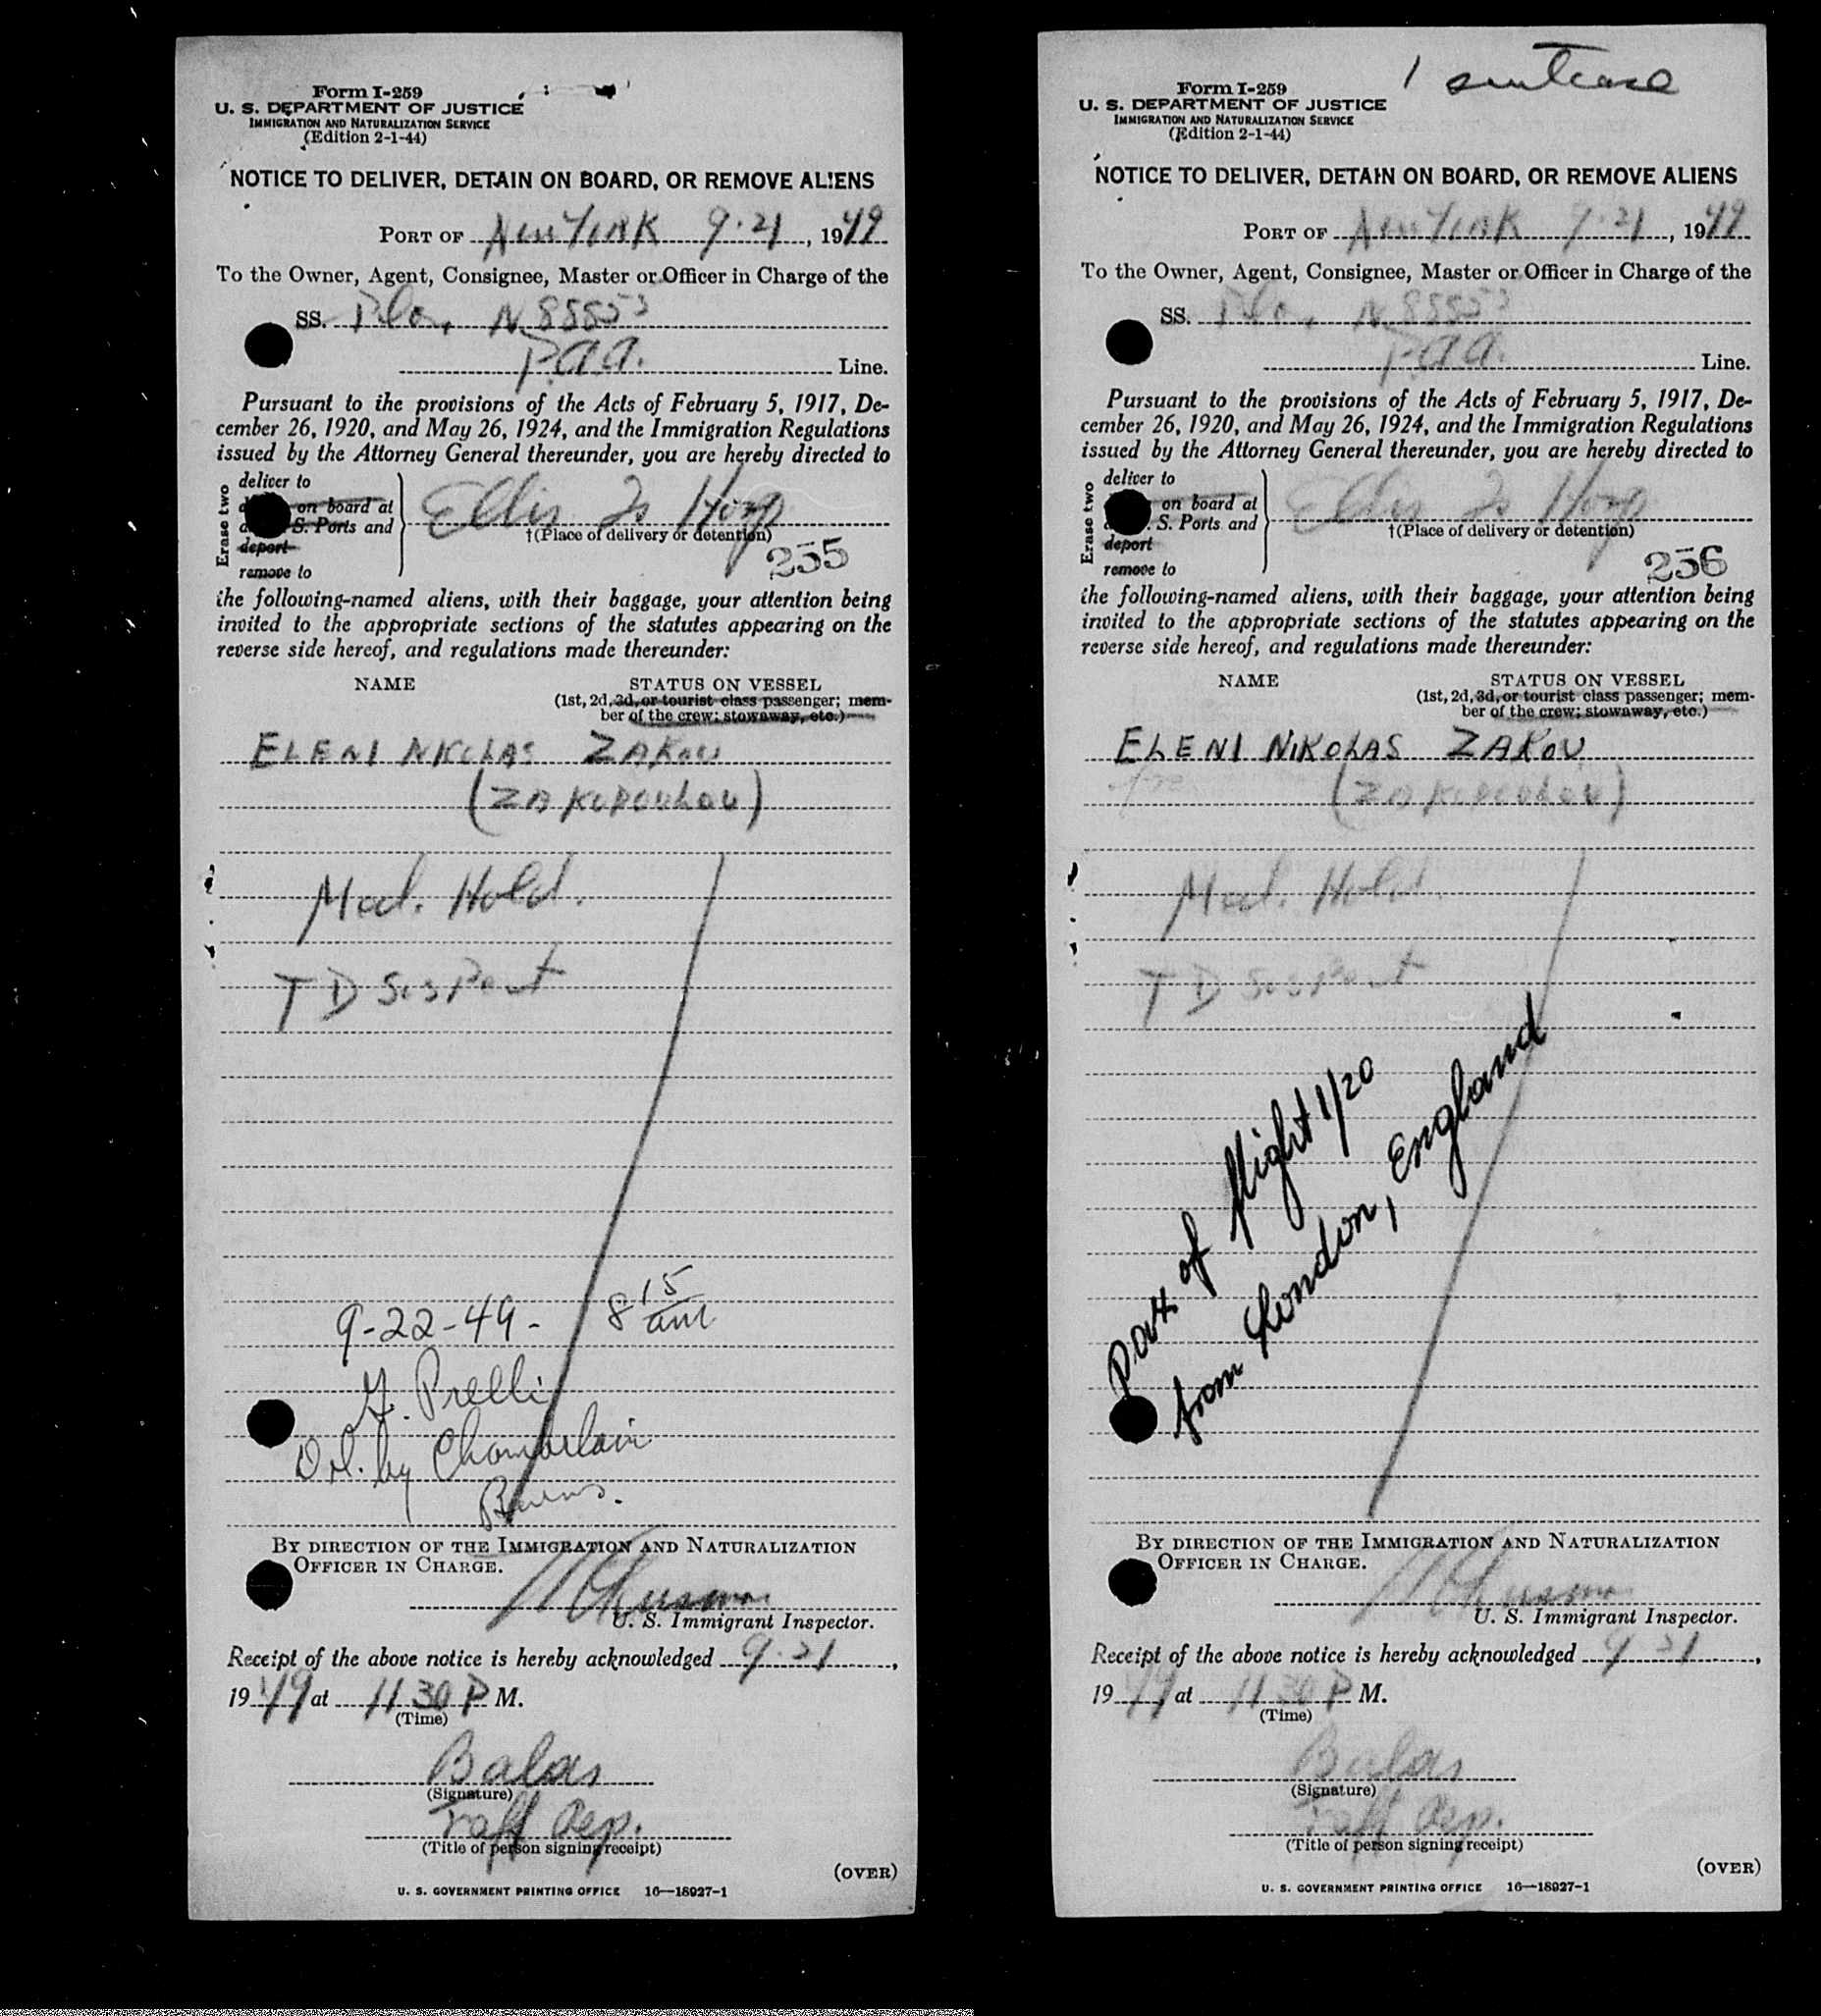 Form I-259
U. S. DEPARTMENT OF JUSTICE
IMMIGRATION AND NATURALIZATION SERVICE
(Edition 2-1-44)
NOTICE TO DELIVER, DETAIN ON BOARD, OR REMOVE ALIENS
PORT OF New York 9-21, 1949
To the Owner, Agent, Consignee, Master or Officer in Charge of the
SS. N 88855
P.A.A. Line.
Pursuant to the provisions of the Acts of February 5, 1917, De-
cember 26, 1920, and May 26, 1924, and the Immigration Regulations
issued by the Attorney General thereunder, you are hereby directed to
Erase two
deliver to
on board at
S. Ports and
deport
remove to
Ellis Is Hosp
†(Place of delivery or detention)
255
the following-named aliens, with their baggage, your attention being
invited to the appropriate sections of the statutes appearing on the
reverse side hereof, and regulations made thereunder:
NAME STATUS ON VESSEL
(1st, 2d, 3d, or tourist class passenger; mem-
ber of the crew; stowaway, etc.)
ELENI NIKOLAS ZAKOU
(ZAKOPOULOU)
Med. Hold.
T B Suspect
9-22-49- 8 15 am
Prelli
Del. by Chamberlain
Burns.
BY DIRECTION OF THE IMMIGRATION AND NATURALIZATION
OFFICER IN CHARGE.
U. S. Immigrant Inspector.
Receipt of the above notice is hereby acknowledged 9-21,
1949 at 11 30 P M.
(Time)
Balas
(Signature)
Traff Rep.
(Title of person signing receipt)
(OVER)
U. S. GOVERNMENT PRINTING OFFICE 16—18927-1
1 suitcase
Form I-259
U. S. DEPARTMENT OF JUSTICE
IMMIGRATION AND NATURALIZATION SERVICE
(Edition 2-1-44)
NOTICE TO DELIVER, DETAIN ON BOARD, OR REMOVE ALIENS
PORT OF New York 9-21, 1949
To the Owner, Agent, Consignee, Master or Officer in Charge of the
SS. N 88855
P.A.A. Line.
Pursuant to the provisions of the Acts of February 5, 1917, De-
cember 26, 1920, and May 26, 1924, and the Immigration Regulations
issued by the Attorney General thereunder, you are hereby directed to
Erase two
deliver to
on board at
S. Ports and
deport
remove to
Ellis Is Hosp
†(Place of delivery or detention)
256
the following-named aliens, with their baggage, your attention being
invited to the appropriate sections of the statutes appearing on the
reverse side hereof, and regulations made thereunder:
NAME STATUS ON VESSEL
(1st, 2d, 3d, or tourist class passenger; mem-
ber of the crew; stowaway, etc.)
ELENI NIKOLAS ZAKOU
(ZAKOPOULOU)
Med. Hold.
T B Suspect
pax of flight 1/20
from London, England
BY DIRECTION OF THE IMMIGRATION AND NATURALIZATION
OFFICER IN CHARGE.
U. S. Immigrant Inspector.
Receipt of the above notice is hereby acknowledged 9-21,
1949 at 11 30 P M.
(Time)
Balas
(Signature)
Traff Rep.
(Title of person signing receipt)
(OVER)
U. S. GOVERNMENT PRINTING OFFICE 16—18927-1